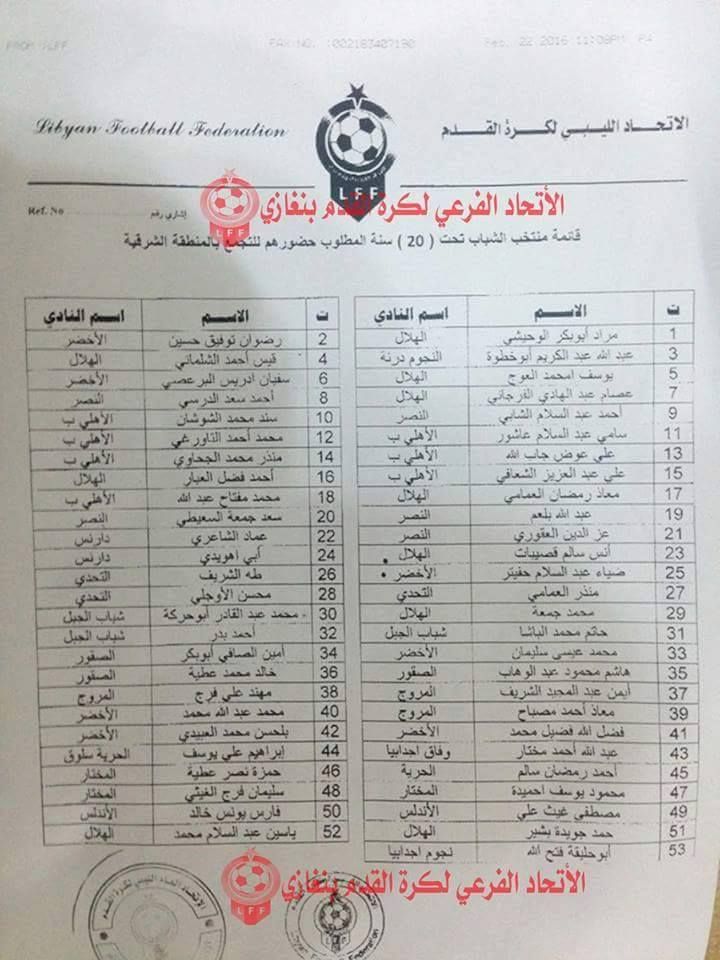 FROM :LFF FAX NO. :002183407190 Feb. 22 2016 11:08PM P4
Libyan Football Federation
الاتحاد الليبي لكرة القدم
LFF
الأتحاد الفرعي لكرة القدم بنغازي
LFF
Ref. No
إشاري رقم
قائمة منتخب الشباب تحت ( 20 ) سنة المطلوب حضورهم للتجمع بالمنطقة الشرقية
ت الاسم اسم النادي
1 مراد أبوبكر الوحيشي الهلال
3 عبد الله عبد الكريم أبوخطوة النجوم درنة
5 يوسف امحمد العوج الهلال
7 عصام عبد الهادي الفرجاني الهلال
9 أحمد عبد السلام الشابي النصر
11 سامي عبد السلام عاشور الأهلي ب
13 علي عوض جاب الله الأهلي ب
15 علي عبد العزيز الشعافي الأهلي ب
17 معاذ رمضان العمامي الهلال
19 عبد الله بلعم النصر
21 عز الدين العقوري النصر
23 أنس سالم قصيبات الهلال
25 ضياء عبد السلام حفيتر الأخضر
27 منذر العمامي التحدي
29 محمد جمعة الهلال
31 حاتم محمد الباشا شباب الجبل
33 محمد عيسى سليمان الأخضر
35 هاشم محمود عبد الوهاب الصقور
37 أيمن عبد المجيد الشريف المروج
39 معاذ أحمد مصباح المروج
41 فضل الله فضيل محمد الأخضر
43 عبد الله أحمد مختار وفاق اجدابيا
45 أحمد رمضان سالم الحرية
47 محمود يوسف احميدة المختار
49 مصطفي غيث علي الأندلس
51 حمد جويدة بشير الهلال
53 أبوحليقة فتح الله نجوم اجدابيا
ت الاسم اسم النادي
2 رضوان توفيق حسين الأخضر
4 قيس أحمد الشلماني الهلال
6 سفيان ادريس البرعصي الأخضر
8 أحمد سعد الدرسي النصر
10 سند محمد الشوشان الأهلي ب
12 محمد أحمد التاورغي الأهلي ب
14 منذر محمد الجحاوي الأهلي ب
16 أحمد فضل العبار الهلال
18 محمد مفتاح عبد الله الأهلي ب
20 سعد جمعة السعيطي النصر
22 عماد الشاعري دارنس
24 أبي اهويدي دارنس
26 طه الشريف التحدي
28 محسن الأوجلي التحدي
30 محمد عبد القادر أبوحركة شباب الجبل
32 أحمد بدر شباب الجبل
34 أمين الصافي أبوبكر الصقور
36 خالد محمد عطية الصقور
38 مهند علي فرج المروج
40 محمد عبد الله محمد الأخضر
42 بلحسن محمد العبيدي الأخضر
44 إبراهيم علي يوسف الحرية سلوق
46 حمزة نصر عطية المختار
48 سليمان فرج الغيثي المختار
50 فارس يونس خالد الأندلس
52 ياسين عبد السلام محمد الهلال
الأتحاد الفرعي لكرة القدم بنغازي
LFF